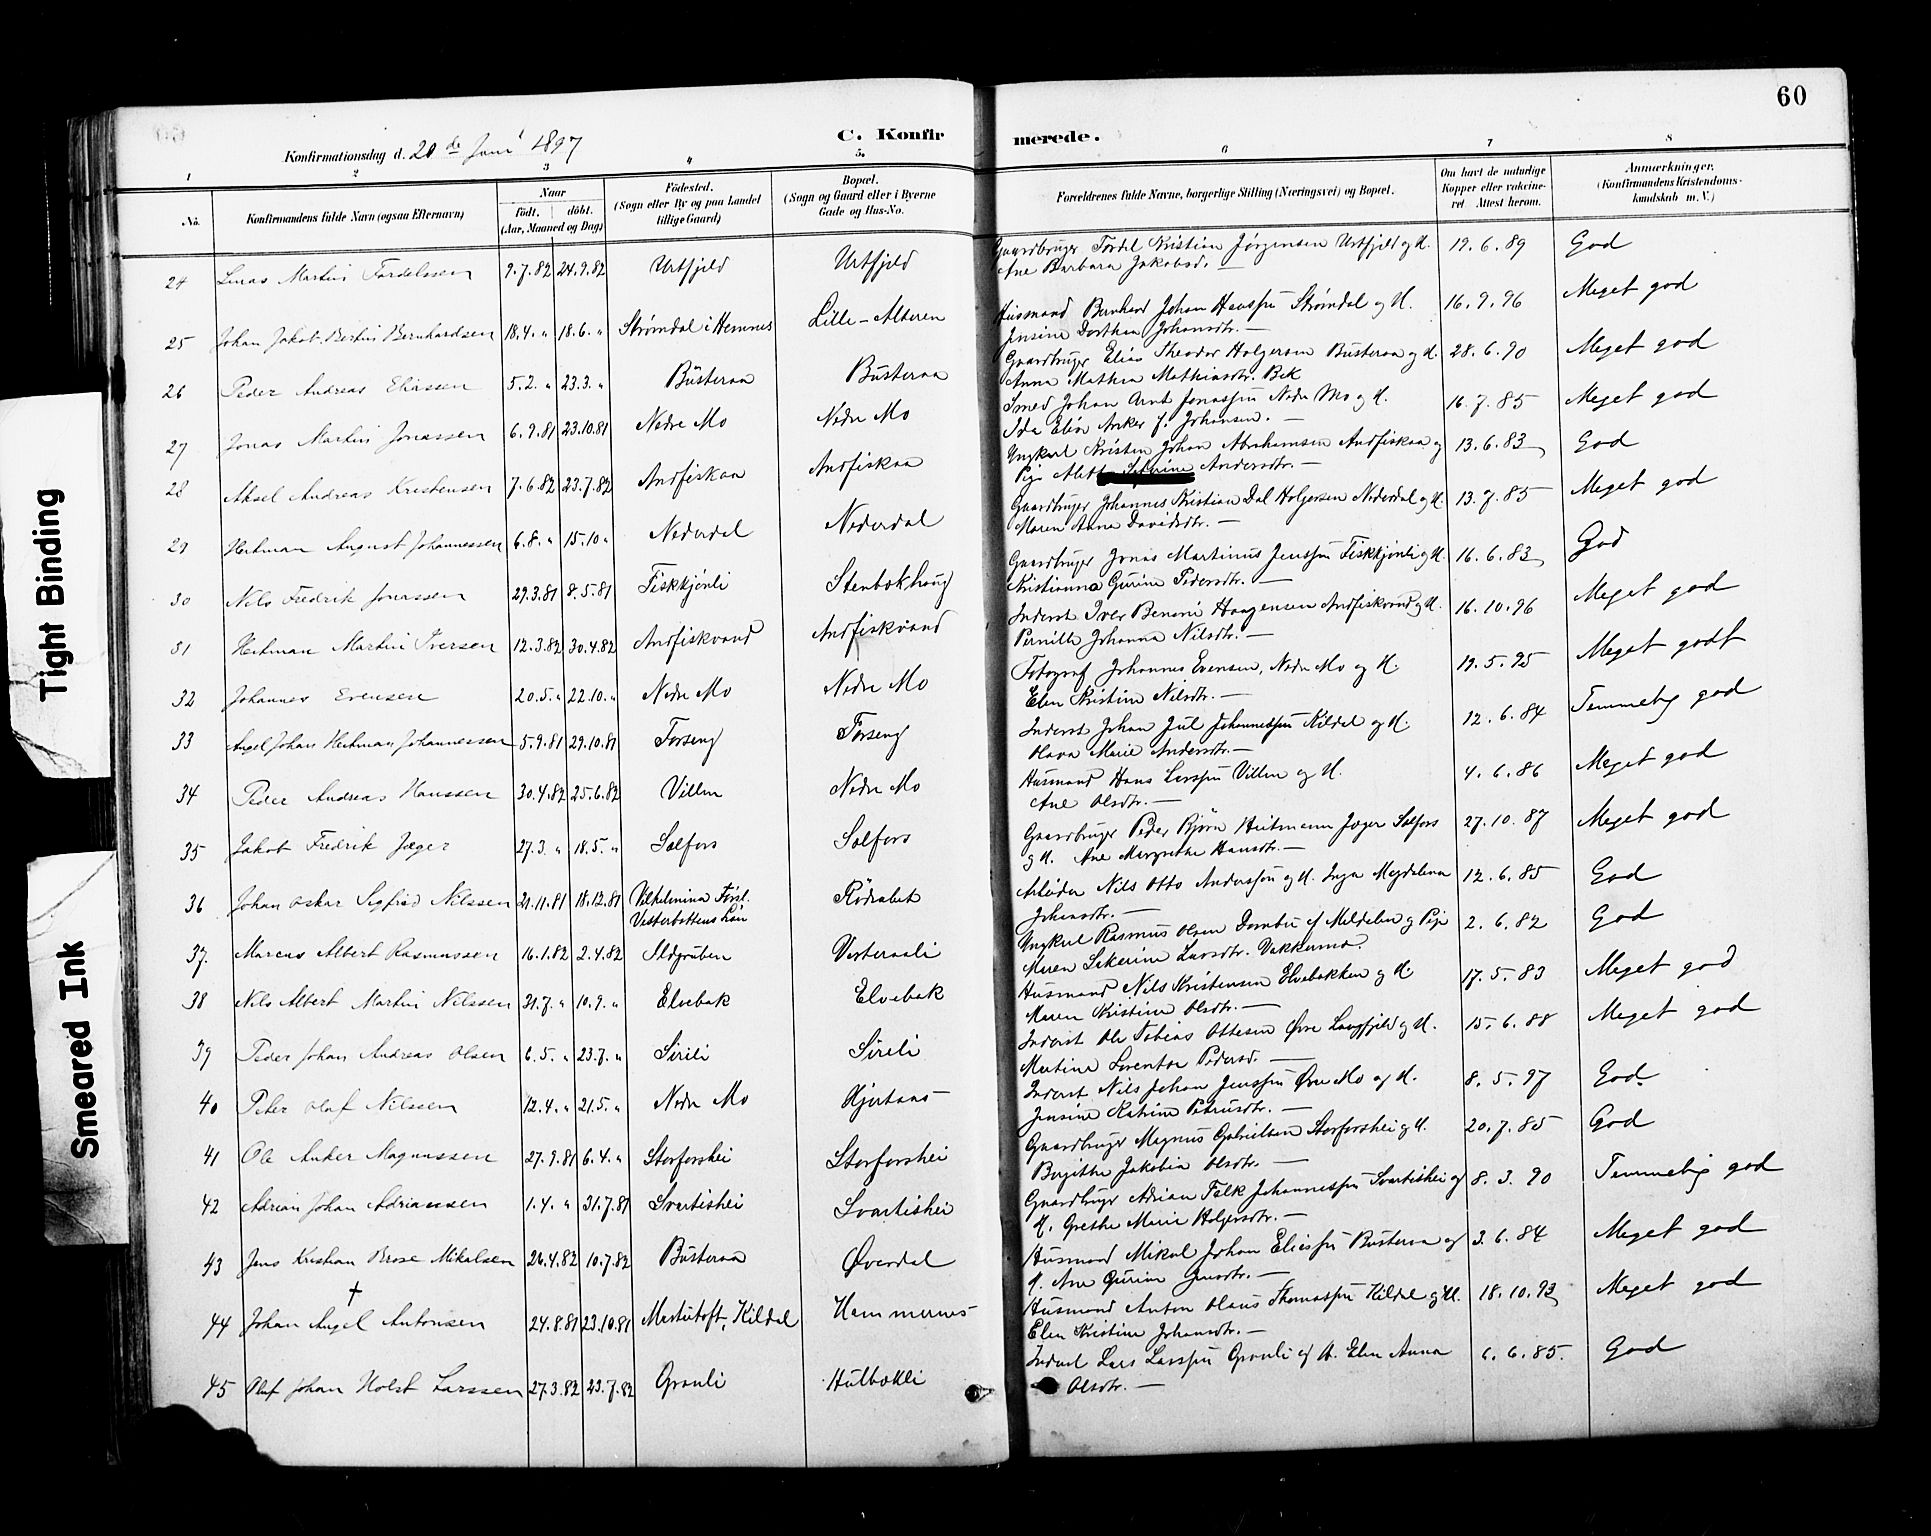 60
C. Konfirmerede.
Konfirmationsdag d. 20de Juni 1897
1 2 3 4 5. 6 7 8
No. Konfirmandens fulde Navn (ogsaa Efternavn) Naar födt. döbt. (Aar, Maaned og Dag) Födested. (Sogn eller By og paa Landet tillige Gaard) Bopæl. (Sogn og Gaard eller i Byerne Gade og Hus-No. Forældrenes fulde Navne, borgerlige Stilling (Næringsvei) og Bopæl. Om havt de naturlige Kopper eller vaccineret Attest herom. Anmærkninger. (Konfirmandens Kristendomskundskab m. V.)
24 Linas Martin Tordelssen 9.7.82 24.9.82 Urtfjeld Urtfjeld Gaardbruger Tordel Kristian Jørgensen Urtfjeld og H. 19.6.89 God
Ane Barbara Jakobsd. —
25 Johan Jakob Bertin Bernhardsen 18.4. " 18.6. " Strømdal i Hemnes Lille-Alteren Husmand Bernhard Johan Hanssen Strømdal og H. 16.9.96 Meget god
Jensine Dorthea Johansdtr. —
26 Peder Andreas Eliassen 5.2. " 23.3. " Busteraa Busteraa Gaardbruger Elias Theodor Holgersen Busteraa og H. 28.6.90 Meget god
Anna Mathea Mathiasdtr. Bek
27 Jonas Martin Jonassen 6.9.81 23.10.81 Nedre Mo Nedre Mo Smed Johan Arnt Jonassen Nedre Mo og H. 16.7.85 Meget god
Ida Elisa Anker f. Johansen. —
28 Aksel Andreas Kristensen 7.6.82 23.7.82 Andfiskaa Andfiskaa Ungkarl Kristen Johan Abrahamsen Andfiskaa og 13.6.83 God
Pige Alette Andersdtr. —
29 Heitman August Johannessen 6.8. " 15.10 " Nederdal Nederdal Gaardbruger Johannes Kristian Dal Holgersen Nederdal og H. 13.7.85 Meget god
Maren Anna Davidsdtr. —
30 Nils Fredrik Jonassen 29.3.81 8.5.81 Fiskkjønli Stenbokhaug Gaardbruger Jonas Martinus Jenssen Fiskkjønli og H. 16.6.83 God
Kristianna Gurine Pedersdtr. —
31 Heitman Martin Iversen 12.3.82 30.4.82 Andfiskvand Andfiskvand Inderst Iver Benoni Haagensen Andfiskvand og H. 16.10.96 Meget god
Pernille Johanna Nilsdtr. —
32 Johannes Evensen 20.5. " 22.10. " Nedre Mo Nedre Mo Fotograf Johannes Evensen, Nedre Mo og H. 19.5.95 Meget godt
Elen Kristine Nilsdtr. —
33 Angel Johan Heitman Johannessen 5.9.81 29.10.81 Forseng Forseng Inderst Johan Jul Johannessen Kildal og H. 12.6.84 Temmelig god
Olava Marie Andersdtr. —
34 Peder Andreas Hanssen 30.4.82 25.6.82 Villen Nedre Mo Husmand Hans Larssen Villen og H. 4.6.86 Meget god
Ane Olsdtr. —
35 Jakob Fredrik Jæger 27.3. " 18.5. " Selfors Selfors Gaardbruger Peder Bjørn Heitmann Jæger Selfors 27.10.87 Meget god
og H. Ane Margrethe Hansdtr. —
36 Johan Oskar Sigfrid Nilssen 21.11.81 18.12.81 Vilhelmina Først. Rödsalet Arbeider Nils Otto Anderssen og H. Inga Magdalena 12.6.85 God
Vesterbottens Län Johansdtr. —
37. Marcus Albert Rasmussen 16.1.82 2.4.82 Ildgruben Vesteraali Ungkarl Rasmus Olsen Dombu af Meldalen og Pige 2.6.82 God
Maren Sekerine Larsdtr. Vakkermo.
38 Nils Albert Martin Nilssen 21.7. " 10.9. " Elvebak Elvebak Husmand Nils Kristensen Elvebakken og H. 17.5.83 Meget god
Maren Kristine Olsdtr. —
39 Peder Johan Andreas Olsen 6.5. " 23.7. " Sirili Sireli Inderst Ole Tobias Ottesen Øvre Langfjeld og H. 15.6.88 Meget god
Martina Lorentse Pedersd. —
40 Peter Olaf Nilssen 12.4. " 21.5. " Nedre Mo Hjertaas Inderst Nils Johan Jenssen Øvre Mo og H. 8.5.97 God
Jensine Katrine Petrusdtr. —
41 Ole Anker Magnussen 27.9.81 6.4. " Storforshei Storforshei Gaardbruger Magnus Gabrielsen Storforshei og H. 20.7.85 God
Birgithe Jakobia Olsdtr. —
42 Adrian Johan Adrianssen 1.4. " 31.7.81 Svartishei Svartishei Gaardbruger Adrian Falk Johannessen Svartishei og 8.3.90 Temmelig god
H. Grethe Marie Holgersdtr. —
43 Jens Kristian Brose Mikalsen 26.4.82 10.7.82 Busteraa Øverdal Husmand Mikal Johan Eliassen Busteraa og 3.6.84 Meget god
H. Ane Gurine Jensdtr. —
†
44 Johan Angel Antonsen 24.8.81 23.10.81 Mestertoft, Kildal Hammernes Husmand Anton Olaus Thomassen Kildal og H. 18.10.93 Meget god
Elen Kristine Johansdtr. —
45 Oluf Johan Holst Larssen 27.3.82 23.7.82 Grønli Hulbækli Inderst Lars Larssen Grønli og H. Elen Anna 6.6.85. God
Olsdtr. —
Tight Binding
Smeared Ink